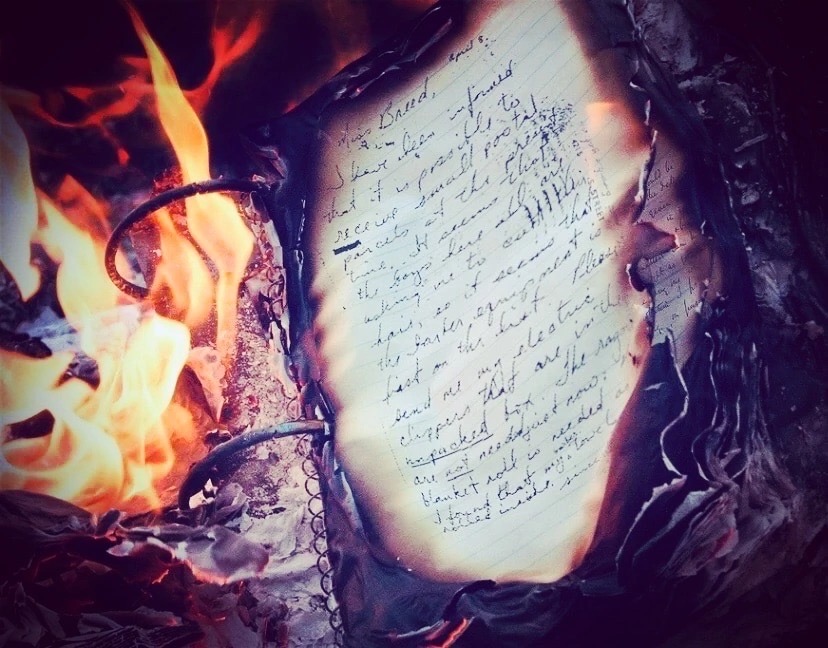 Miss Breed, April 8,
I have been informed
that it is possible to
receive small postal
parcels at the present
time. It seems that
the boys here all are
asking me to cut their
hair, so it seems that
the barber equipment is
first on the list. Please
send me my electric
clippers that are in the
unpacked box. The
are not needed just now.
blanket roll is needed as
I found that my towel
rolled inside.